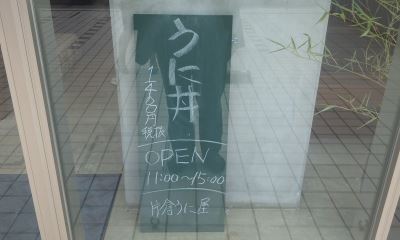 うに丼
1420円
税抜
OPEN
11:00～15:00
片倉うに屋